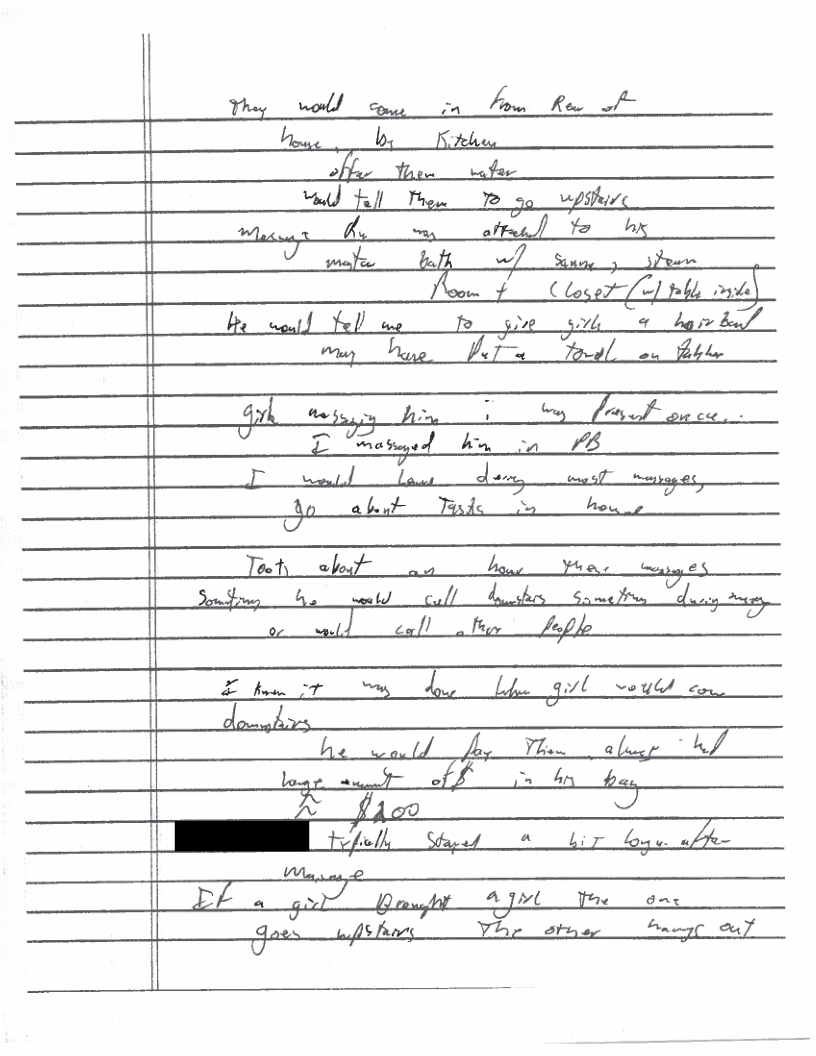 They would come in from Rear of
house, by Kitchen
offer them water
would tell them to go upstairs
Massage Rm was attached to his
master bath w/ sauna, steam
Room + Closet (w/ table inside)
He would tell me to give girls a
may have put a towel on
girls massaging him i was present once..
I massaged him in PB
I would leave during most massages,
go about Tasks in house
Took about an hour these massages
Sometimes he would call downstairs sometimes during
or would call other people
I knew it was done when girl would come
downstairs
he would pay them, always had
large amount of $ in his bag
≈ $200
typically stayed a bit longer after
Massage
If a girl Brought a girl the one
goes upstairs The other hangs out